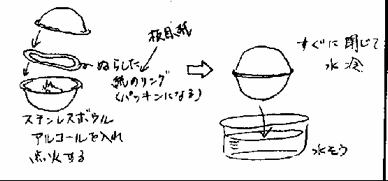 板目紙
ぬらした
紙のリング
(パッキンになる)
ステンレスボウル
アルコールを入れ
点火する
すぐに閉じて
水冷
水そう